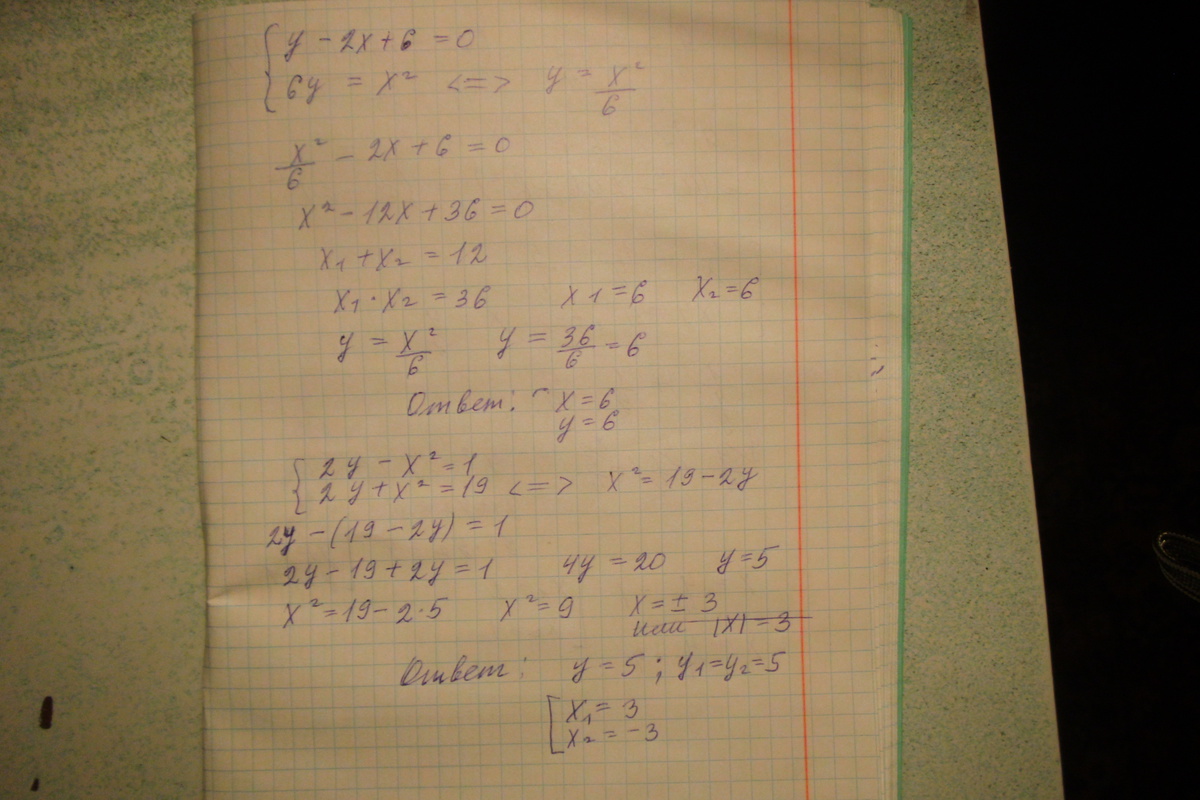 { y - 2x + 6 = 0
6y = x² <=> y = x²/6
x²/6 - 2x + 6 = 0
x² - 12x + 36 = 0
x₁ + x₂ = 12
x₁ · x₂ = 36 x1 = 6 x₂ = 6
y = x²/6 y = 36/6 = 6
Ответ: x = 6
y = 6
{ 2y - x² = 1
2y + x² = 19 <=> x² = 19 - 2y
2y - (19 - 2y) = 1
2y - 19 + 2y = 1 4y = 20 y = 5
x² = 19 - 2·5 x² = 9 x = ± 3
или |x| = 3
Ответ: y = 5 ; y₁ = y₂ = 5
[ x₁ = 3
x₂ = -3